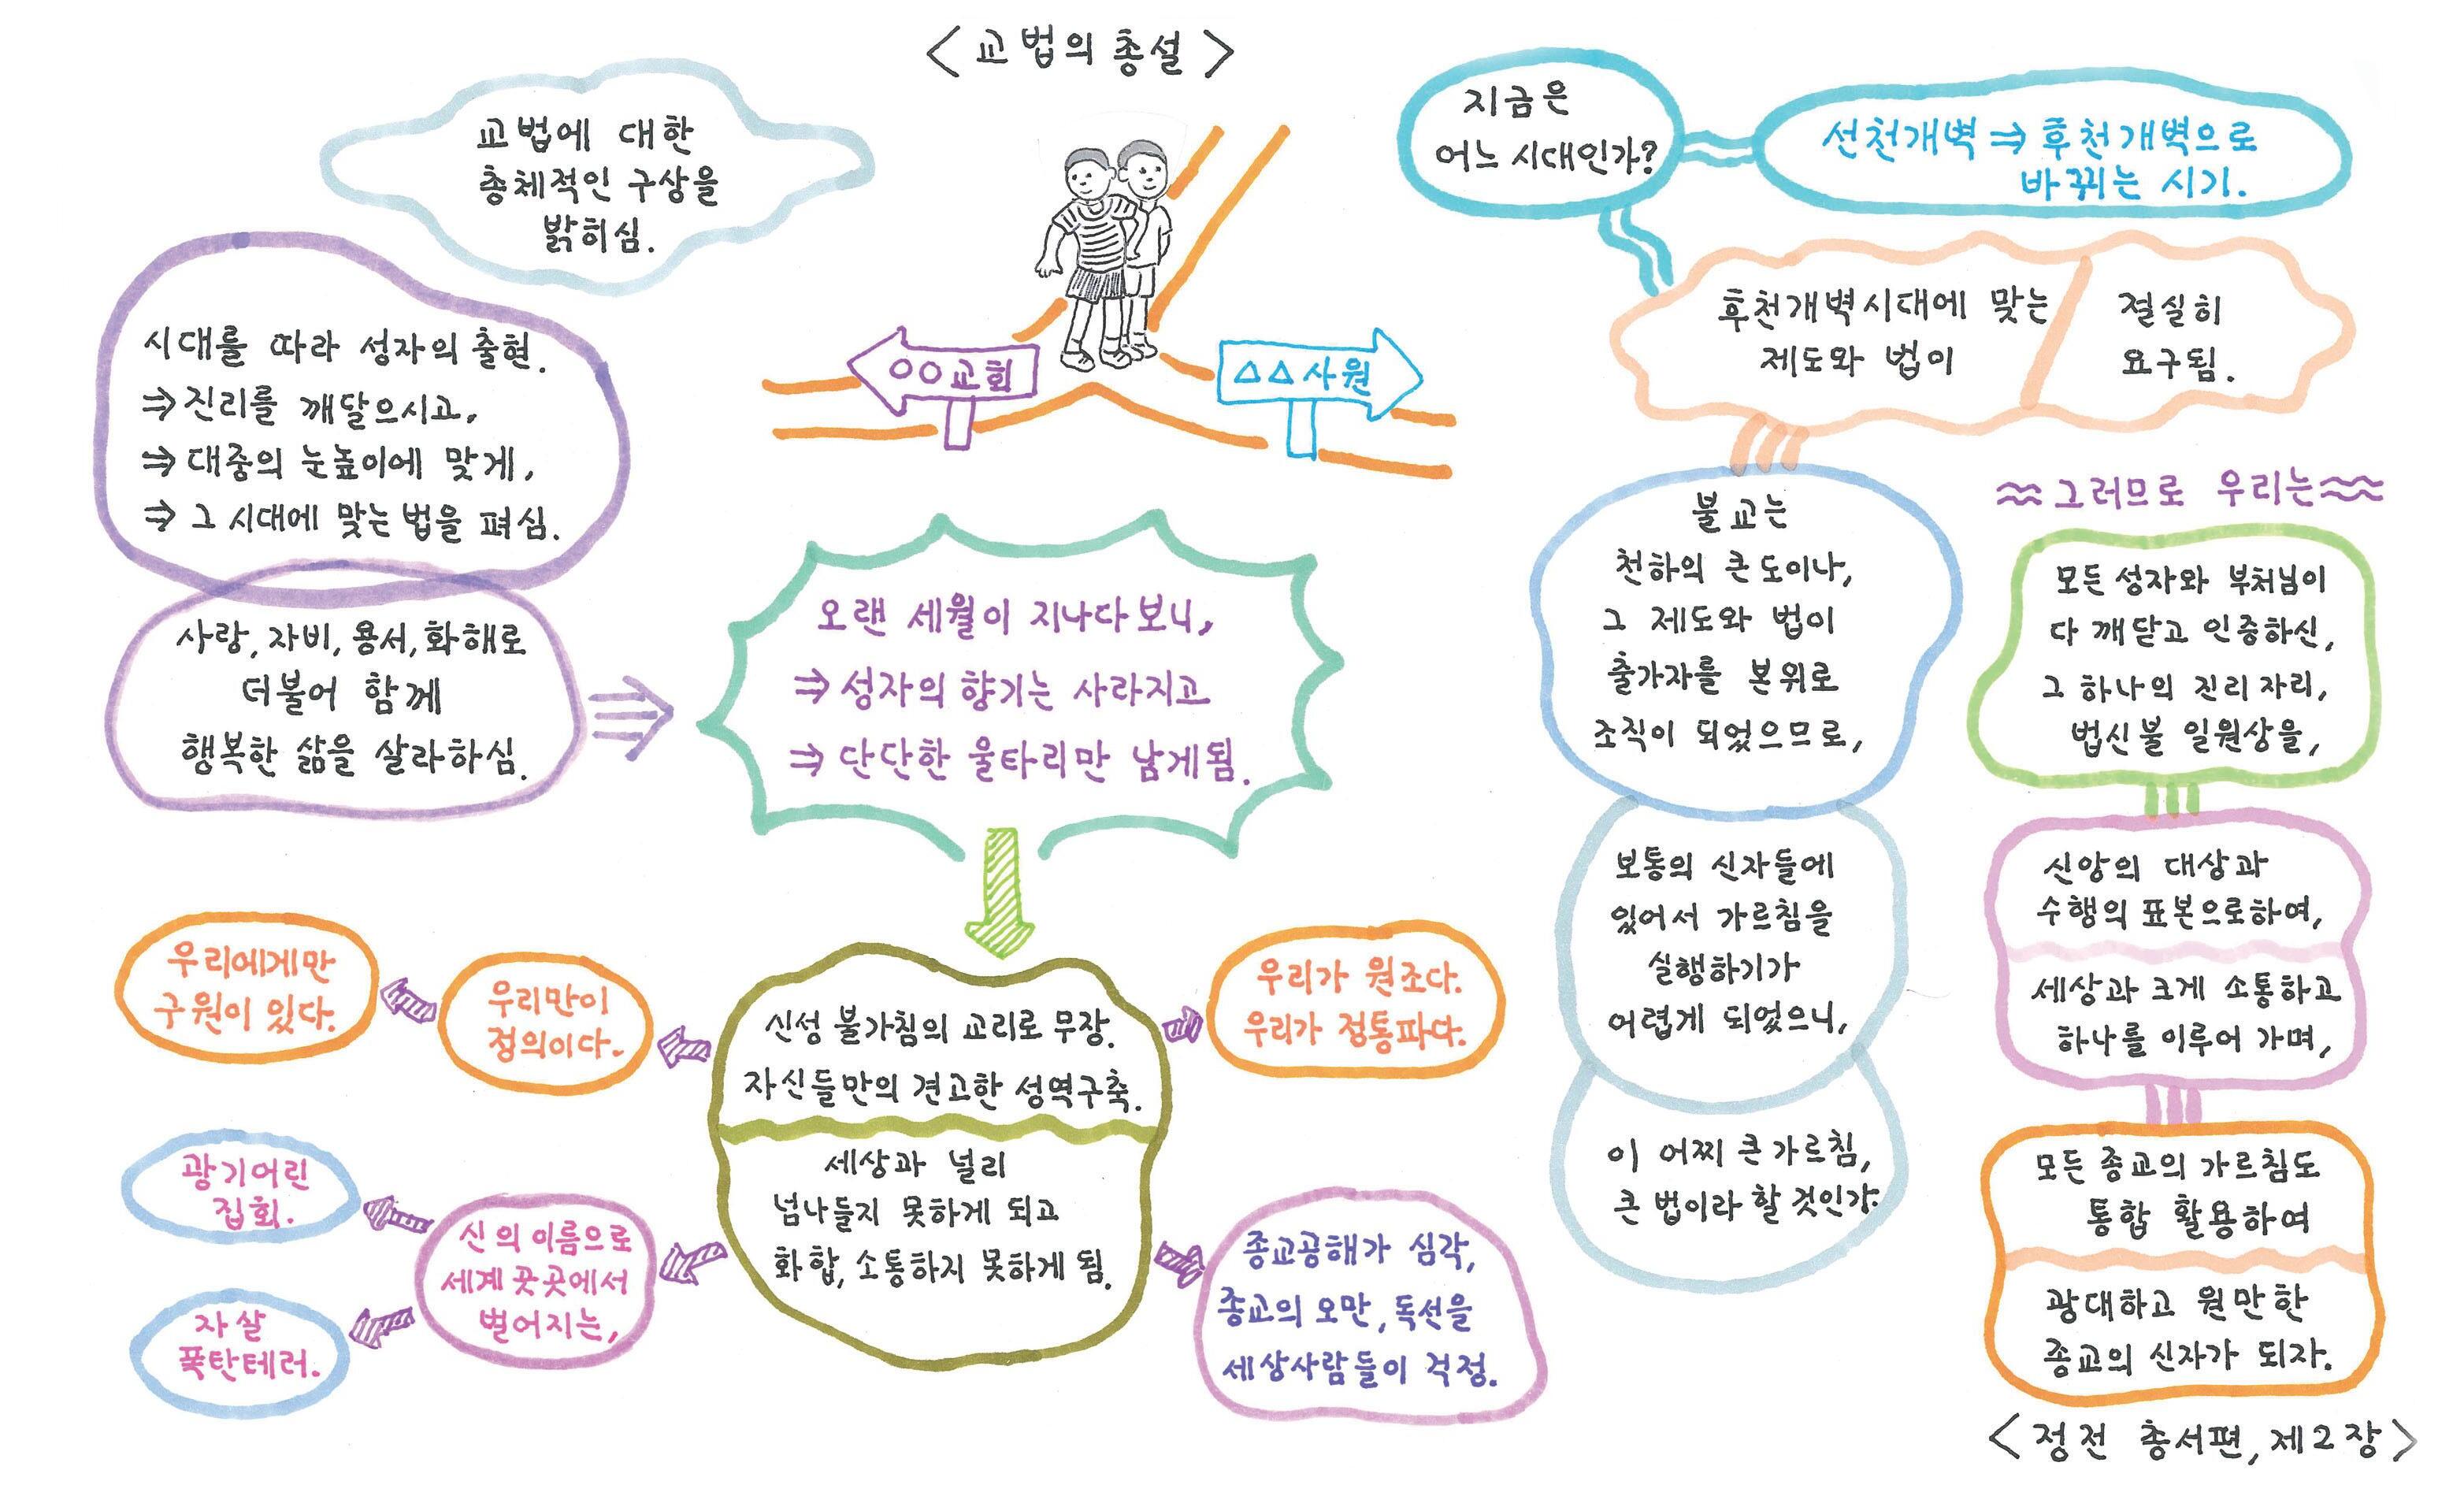 <교법의 총설>
교법에 대한
총체적인 구상을
밝히심.
시대를 따라 성자의 출현.
⇒ 진리를 깨달으시고,
⇒ 대중의 눈높이에 맞게,
⇒ 그 시대에 맞는 법을 펴심.
사랑, 자비, 용서, 화해로
더불어 함께
행복한 삶을 살라하심.
○○교회
△△사원
오랜 세월이 지나다보니,
⇒ 성자의 향기는 사라지고
⇒ 단단한 울타리만 남게됨.
신성 불가침의 교리로 무장.
자신들만의 견고한 성역구축.
세상과 널리
넘나들지 못하게 되고
화합, 소통하지 못하게 됨.
우리만이
정의이다.
우리에게만
구원이 있다.
우리가 원조다.
우리가 정통파다.
신의 이름으로
세계 곳곳에서
벌어지는,
광기어린
집회.
자살
폭탄테러.
종교공해가 심각,
종교의 오만, 독선을
세상사람들이 걱정.
지금은
어느 시대인가?
선천개벽 ⇒ 후천개벽으로
바뀌는 시기.
후천개벽시대에 맞는
제도와 법이
절실히
요구됨.
불교는
천하의 큰 도이나,
그 제도와 법이
출가자를 본위로
조직이 되었으므로,
보통의 신자들에
있어서 가르침을
실행하기가
어렵게 되었으니,
이 어찌 큰 가르침,
큰 법이라 할 것인가.
그러므로 우리는
모든 성자와 부처님이
다 깨닫고 인증하신,
그 하나의 진리 자리,
법신불 일원상을,
신앙의 대상과
수행의 표본으로하여,
세상과 크게 소통하고
하나를 이루어 가며,
모든 종교의 가르침도
통합 활용하여
광대하고 원만한
종교의 신자가 되자.
<정전 총서편, 제2장>